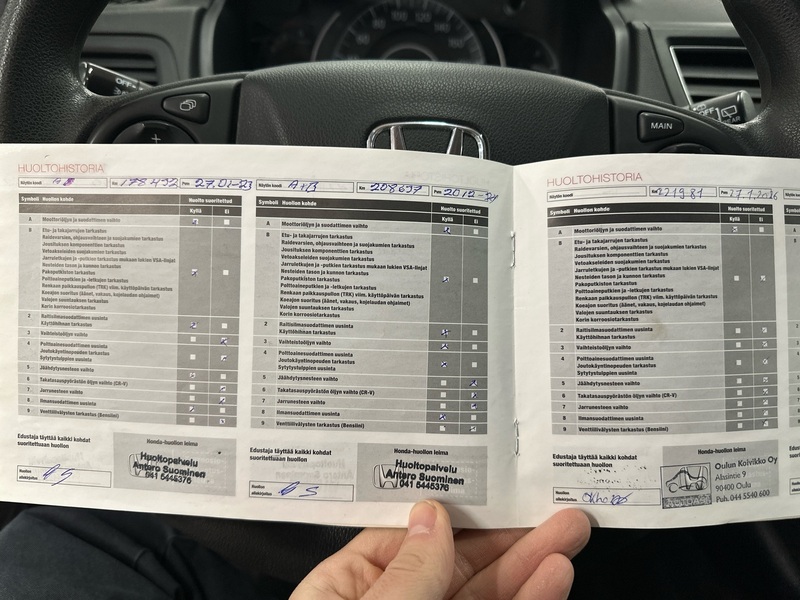 OFF
MAIN
OFF
REAR
80 100 120
140
160
HUOLTOHISTORIA
Näytön koodi Km 178 492 Pvm 27.01-23
Symboli Huollon kohde Huolto suoritettud
Kyllä Ei
A Moottoriöljyn ja suodattimen vaihto
B Etu- ja takajarrujen tarkastus
Raidevarsien, ohjausvaihteen ja suojakumien tarkastus
Jousituksen komponenttien tarkastus
Vetoakseleiden suojakumien tarkastus
Jarruletkujen - putkien tarkastus mukaan lukien VSA-linjat
Nesteiden tason ja kunnon tarkastus
Pakoputkiston tarkastus
Polttoaineputkien ja -letkujen tarkastus
Renkaan paikkauspullon (TRK) viim. käyttöpäivän tarkastus
Koeajon suoritus (äänet, vakaus, kojelaudan ohjaimet)
Valojen suuntauksen tarkastus
Korin korroosiotarkastus
2 Raitisilmasuodattimen uusinta
Käyttöhihnan tarkastus
3 Vaihteistoöljyn vaihto
4 Polttoainesuodattimen uusinta
Joutokäyntinopeuden tarkastus
Sytytystulppien uusinta
5 Jäähdytysnesteen vaihto
6 Takatasauspyörästön öljyn vaihto (CR-V)
7 Jarrunesteen vaihto
8 Ilmansuodattimen uusinta
9 Venttiilivälysten tarkastus (Bensiini)
Edustaja täyttää kaikki kohdat
suoritettuaan huollon
Honda-huollon leima
Huoltopalvelu
Antero Suominen
041 5445376
Huollon
allekirjoitus
Näytön koodi A+B Km 208637 Pvm 2012-24
Symboli Huollon kohde Huolto suoritettud
Kyllä Ei
A Moottoriöljyn ja suodattimen vaihto
B Etu- ja takajarrujen tarkastus
Raidevarsien, ohjausvaihteen ja suojakumien tarkastus
Jousituksen komponenttien tarkastus
Vetoakseleiden suojakumien tarkastus
Jarruletkujen - putkien tarkastus mukaan lukien VSA-linjat
Nesteiden tason ja kunnon tarkastus
Pakoputkiston tarkastus
Polttoaineputkien ja -letkujen tarkastus
Renkaan paikkauspullon (TRK) viim. käyttöpäivän tarkastus
Koeajon suoritus (äänet, vakaus, kojelaudan ohjaimet)
Valojen suuntauksen tarkastus
Korin korroosiotarkastus
2 Raitisilmasuodattimen uusinta
Käyttöhihnan tarkastus
3 Vaihteistoöljyn vaihto
4 Polttoainesuodattimen uusinta
Joutokäyntinopeuden tarkastus
Sytytystulppien uusinta
5 Jäähdytysnesteen vaihto
6 Takatasauspyörästön öljyn vaihto (CR-V)
7 Jarrunesteen vaihto
8 Ilmansuodattimen uusinta
9 Venttiilivälysten tarkastus (Bensiini)
Edustaja täyttää kaikki kohdat
suoritettuaan huollon
Honda-huollon leima
Huoltopalvelu
Antero Suominen
041 5445376
Huollon
allekirjoitus
HUOLTOHISTORIA
Näytön koodi Km 221981 Pvm 27.1.2026
Symboli Huollon kohde Huolto suoritettud
Kyllä Ei
A Moottoriöljyn ja suodattimen vaihto
B Etu- ja takajarrujen tarkastus
Raidevarsien, ohjausvaihteen ja suojakumien tarkastus
Jousituksen komponenttien tarkastus
Vetoakseleiden suojakumien tarkastus
Jarruletkujen - putkien tarkastus mukaan lukien VSA-linjat
Nesteiden tason ja kunnon tarkastus
Pakoputkiston tarkastus
Polttoaineputkien ja -letkujen tarkastus
Renkaan paikkauspullon (TRK) viim. käyttöpäivän tarkastus
Koeajon suoritus (äänet, vakaus, kojelaudan ohjaimet)
Valojen suuntauksen tarkastus
Korin korroosiotarkastus
2 Raitisilmasuodattimen uusinta
Käyttöhihnan tarkastus
3 Vaihteistoöljyn vaihto
4 Polttoainesuodattimen uusinta
Joutokäyntinopeuden tarkastus
Sytytystulppien uusinta
5 Jäähdytysnesteen vaihto
6 Takatasauspyörästön öljyn vaihto (CR-V)
7 Jarrunesteen vaihto
8 Ilmansuodattimen uusinta
9 Venttiilivälysten tarkastus (Bensiini)
Edustaja täyttää kaikki kohdat
suoritettuaan huollon
Honda-huollon leima
Oulun Kolvikko Oy
Alasintie 9
90400 Oulu
Puh. 044 5540 600
Huollon
allekirjoitus